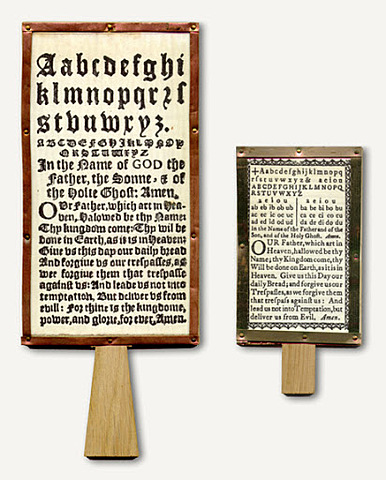 Aabcdefghi
klmnopqrꝛſ
stvuwxyz.
ABCDEFGHIKLMNOP
QRSTUWXYZ
In the Name of GOD the
Father, the Sonne, & of
the Holie Ghost: Amen.
OUr Father, which art in Hea-
ven, Halowed be thy Name:
Thy kingdom come: Thy wil be
done in Earth, as it is in Heaven:
Give us this day our daily bread
And forgive vs our trespasses, as
wee forgive them that trespasse
against vs: And leade vs not into
temptation, But deliver vs from
evill: For thine is the kingdome,
power, and glorie, for ever, Amen.
+Aabcdefghijklmnopq
rſstuvwxyz& aeiou
ABCDEFGHIJKLMNOPQ
RSTUVWXYZ
aeiou aeiou
ab eb ib ob ub ba be bi bo bu
ac ec ic oc uc ca ce ci co cu
ad ed id od ud da de di do du
in the Name of the Father and of the
Son, and of the Holy Ghost. Amen.
OUR Father, which art in
Heaven, hallowed be thy
Name; thy Kingdom come, thy
Will be done on Earth, as it is in
Heaven. Give us this Day our
daily Bread; and forgive us our
Treſpaſſes, as we forgive them
that treſpaſs againſt us: And
lead us not into Temptation, but
deliver us from Evil. Amen.